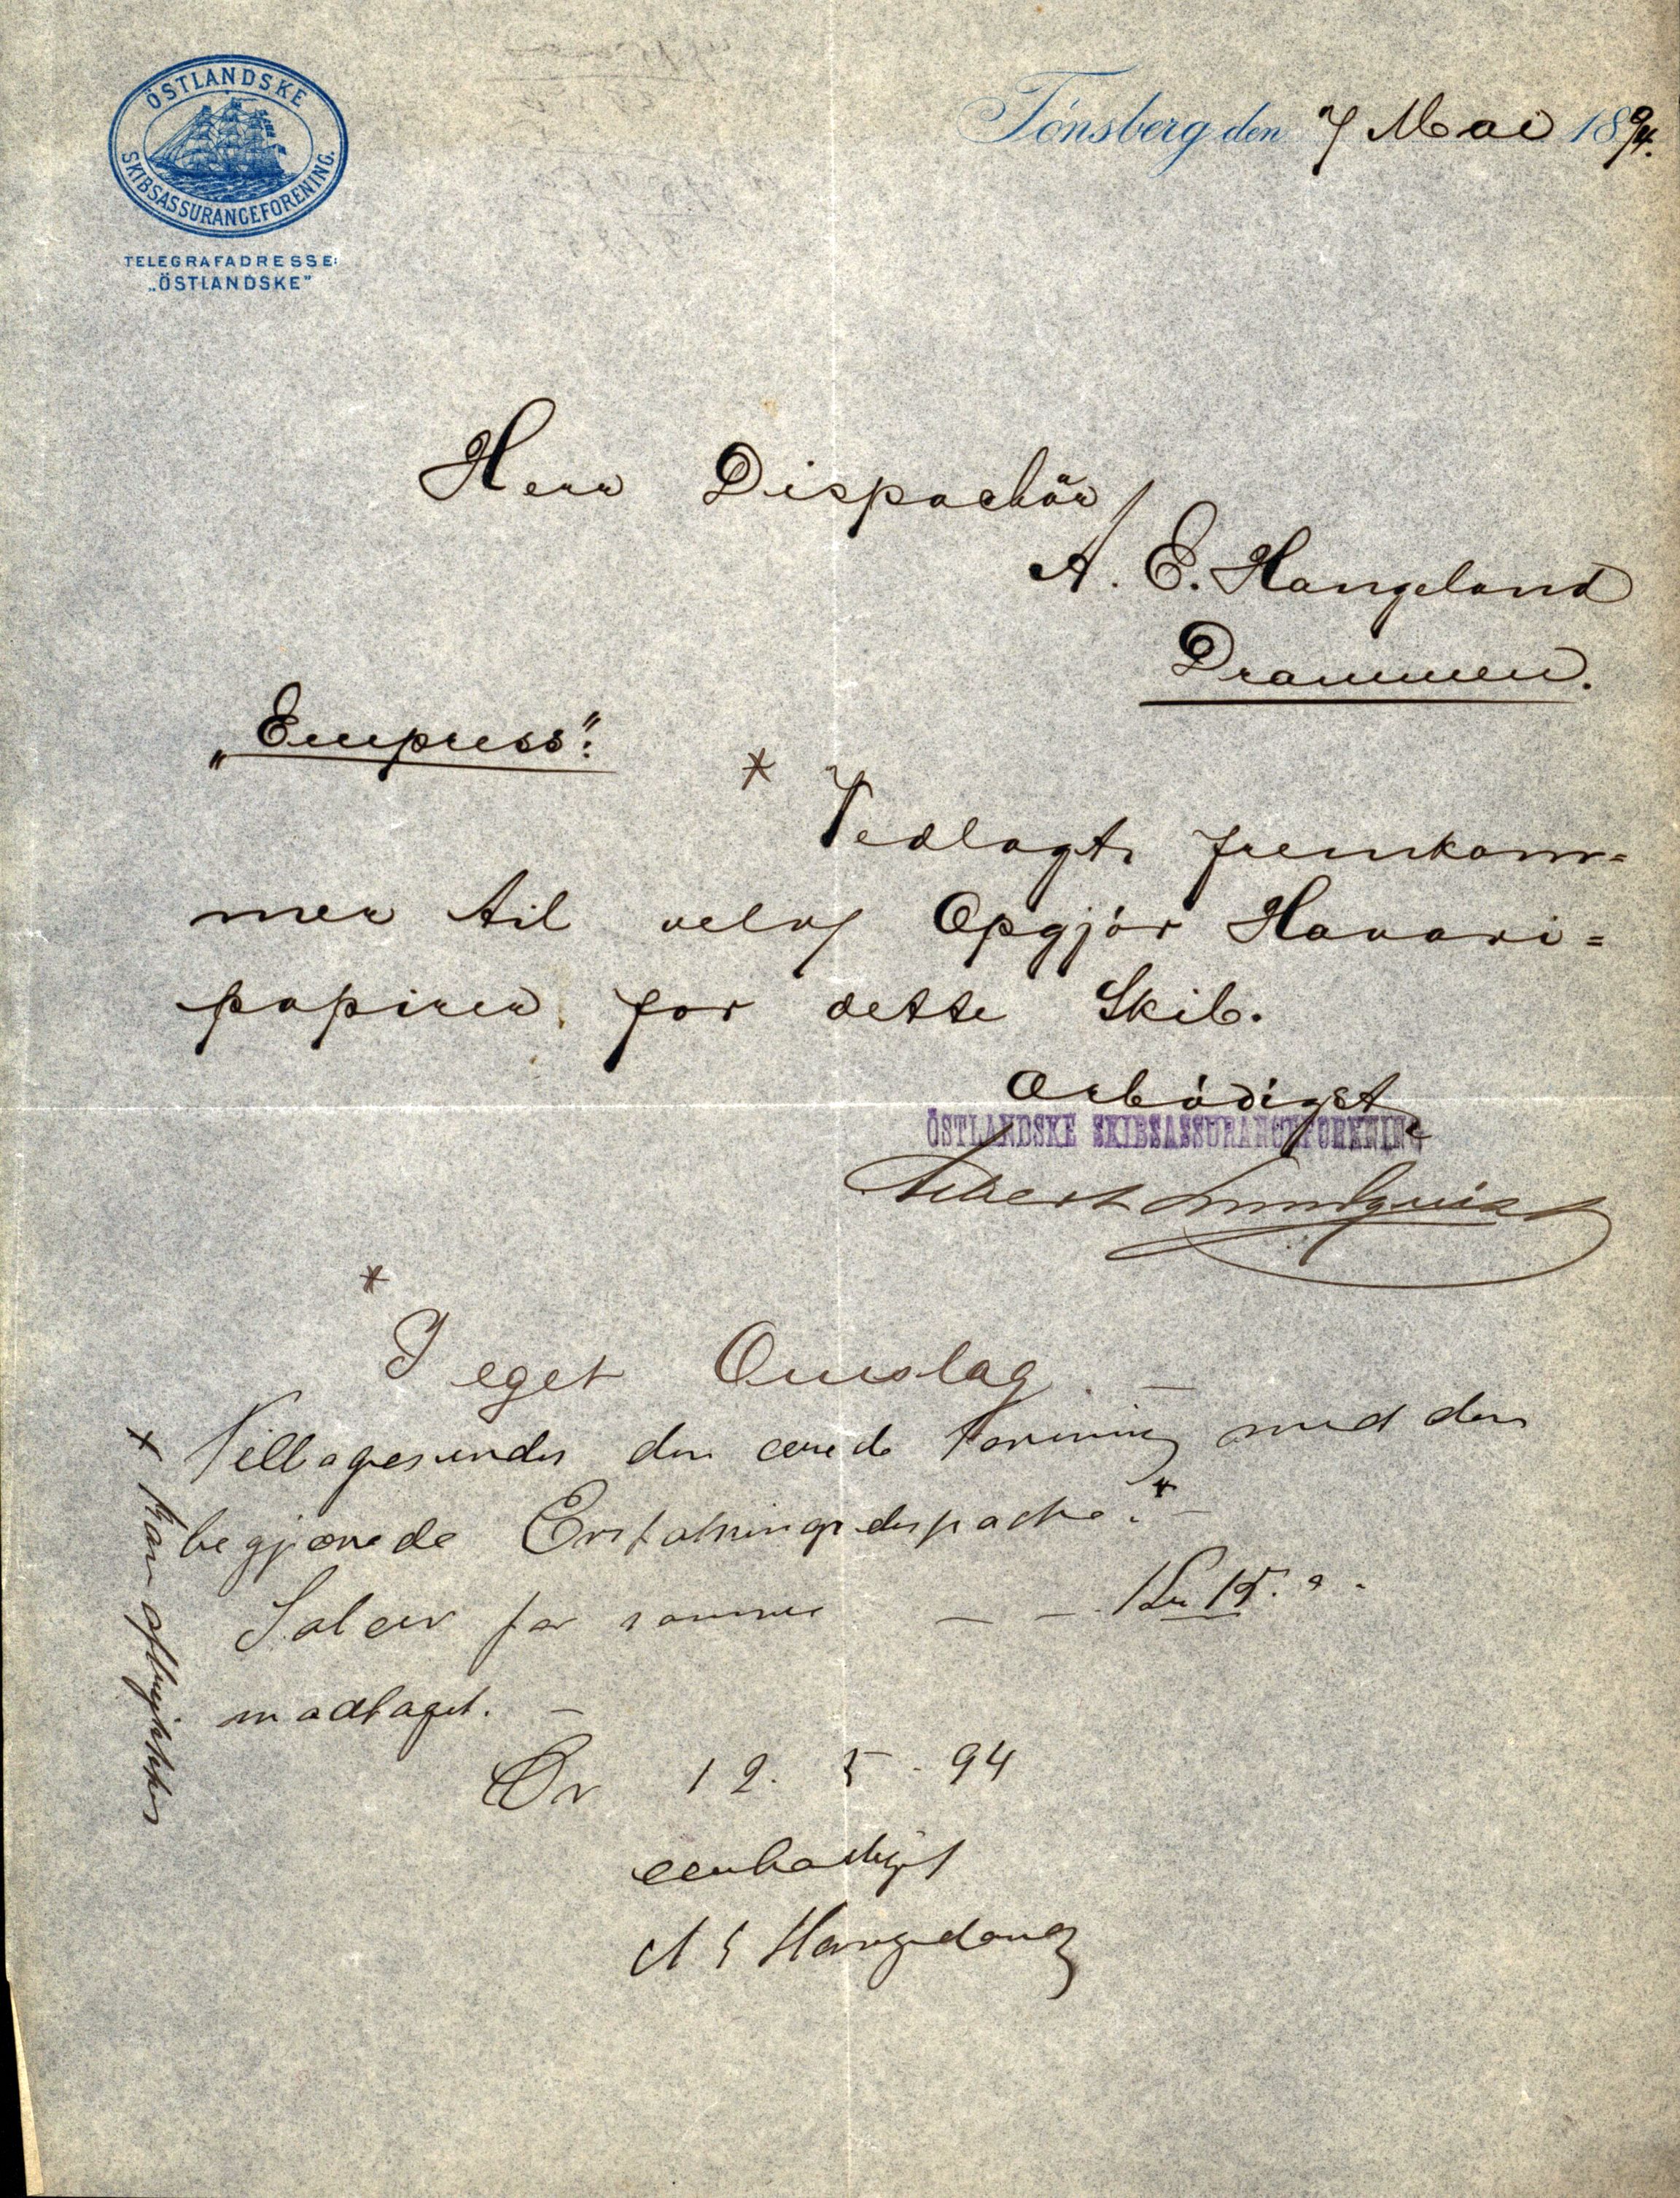 ÖSTLANDSKE
SKIBSASSURANCEFORENING.
TELEGRAFADRESSE:
„ÖSTLANDSKE"
Tönsberg den 7 Mai 1894.
Herr Dispachör
A. E. Hangeland
Drammen.
„Empress":
* Vedlagt fremkom=
mer til velvf Opgjör Havari=
papirer for dette Skib.
Ærbödigst
ÖSTLANDSKE SKIBSASSURANCEFORENING
Albert Lundquist
*
I eget Omslag. —
Tilbagesendes den ærede Forening med den
begjærede Erstatningsdispache.* —
Salær for samme — — Kr 15. " -
modtaget. —
Dr 12. 5. 94
ærbødigst
A E Hangeland